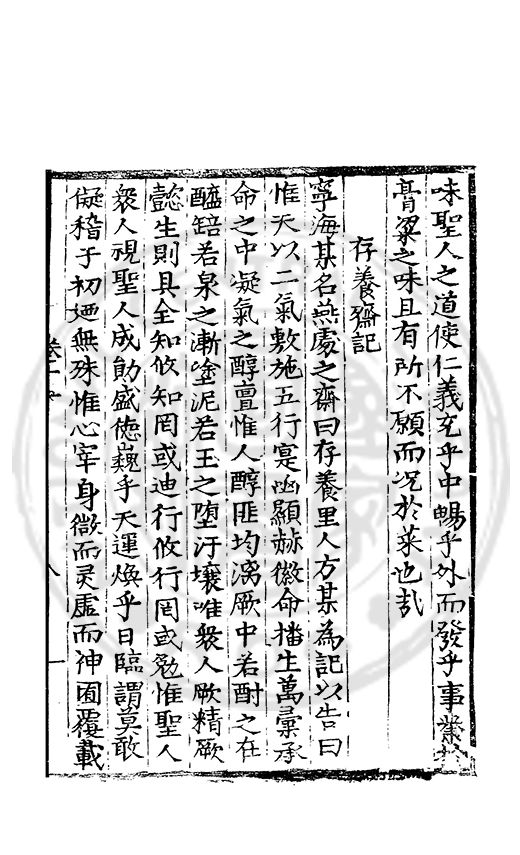 味聖人之道使仁義充乎中暢乎外而發乎事業於
膏粱之味且有所不願而况於菜也哉
存養齋記
寧海某名燕處之齋曰存養里人方某為記以告曰
惟天以二氣敷施五行寔幽顯赫徽命播生萬彙承
命之中凝氣之醇亶惟人醇匪均漓厥中若酎之在
醯瓿若泉之漸塗泥若玉之堕汙壤唯衆人厥精厥
懿生則具全知攸知罔或迪行攸行罔或勉惟聖人
衆人視聖人成勛盛徳巍乎天運煥乎日臨謂莫敢
儗稽于初廼無殊惟心宰身微而灵虛而神囿覆載
卷十
八